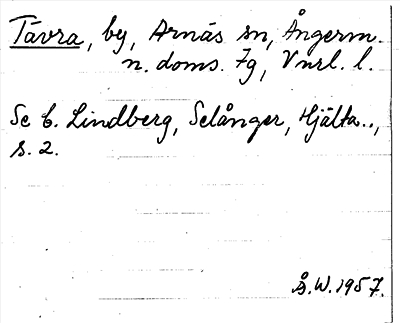 Tävra, by, Arnäs sn, Ångerm.
n. doms. 7g, Vnrl. l.
Se C. Lindberg, Selånger, Hjälta..,
s. 2.
Å.W. 1957.